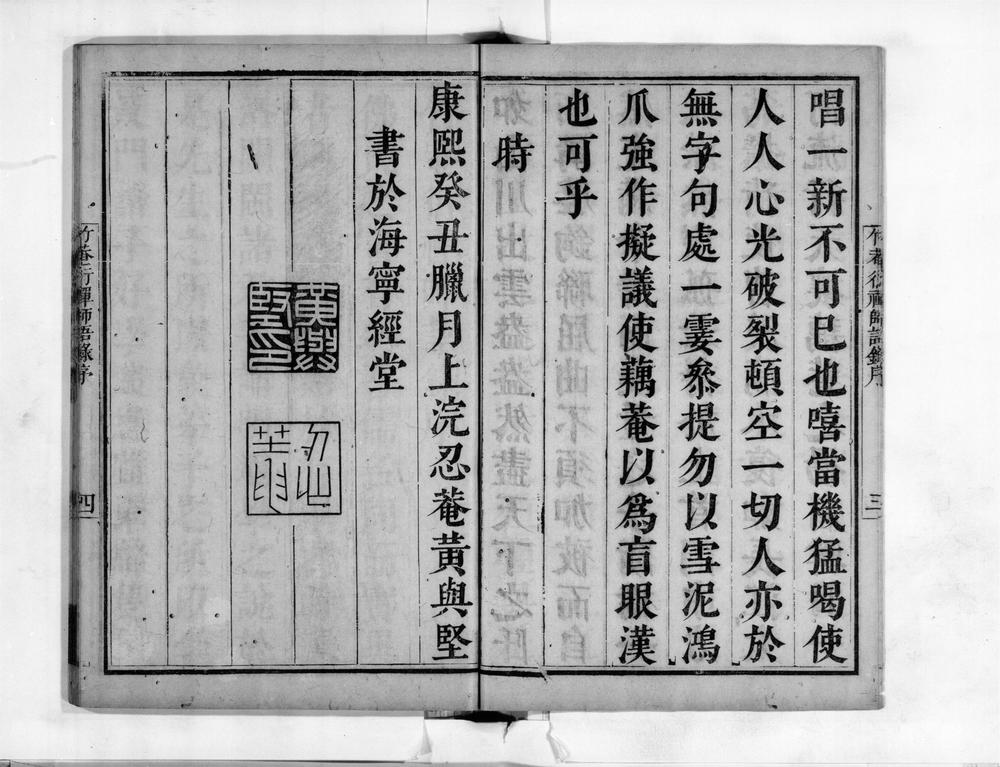 唱一新不可已也嘻當機猛喝使
人人心光破裂頓空一切人亦於
無字句處一霎叅提勿以雪泥鴻
爪強作擬議使藕菴以爲盲眼漢
也可乎
時
康熙癸丑臘月上浣忍菴黃與堅
書於海寧經堂
黃與堅印
忍菴
三
四